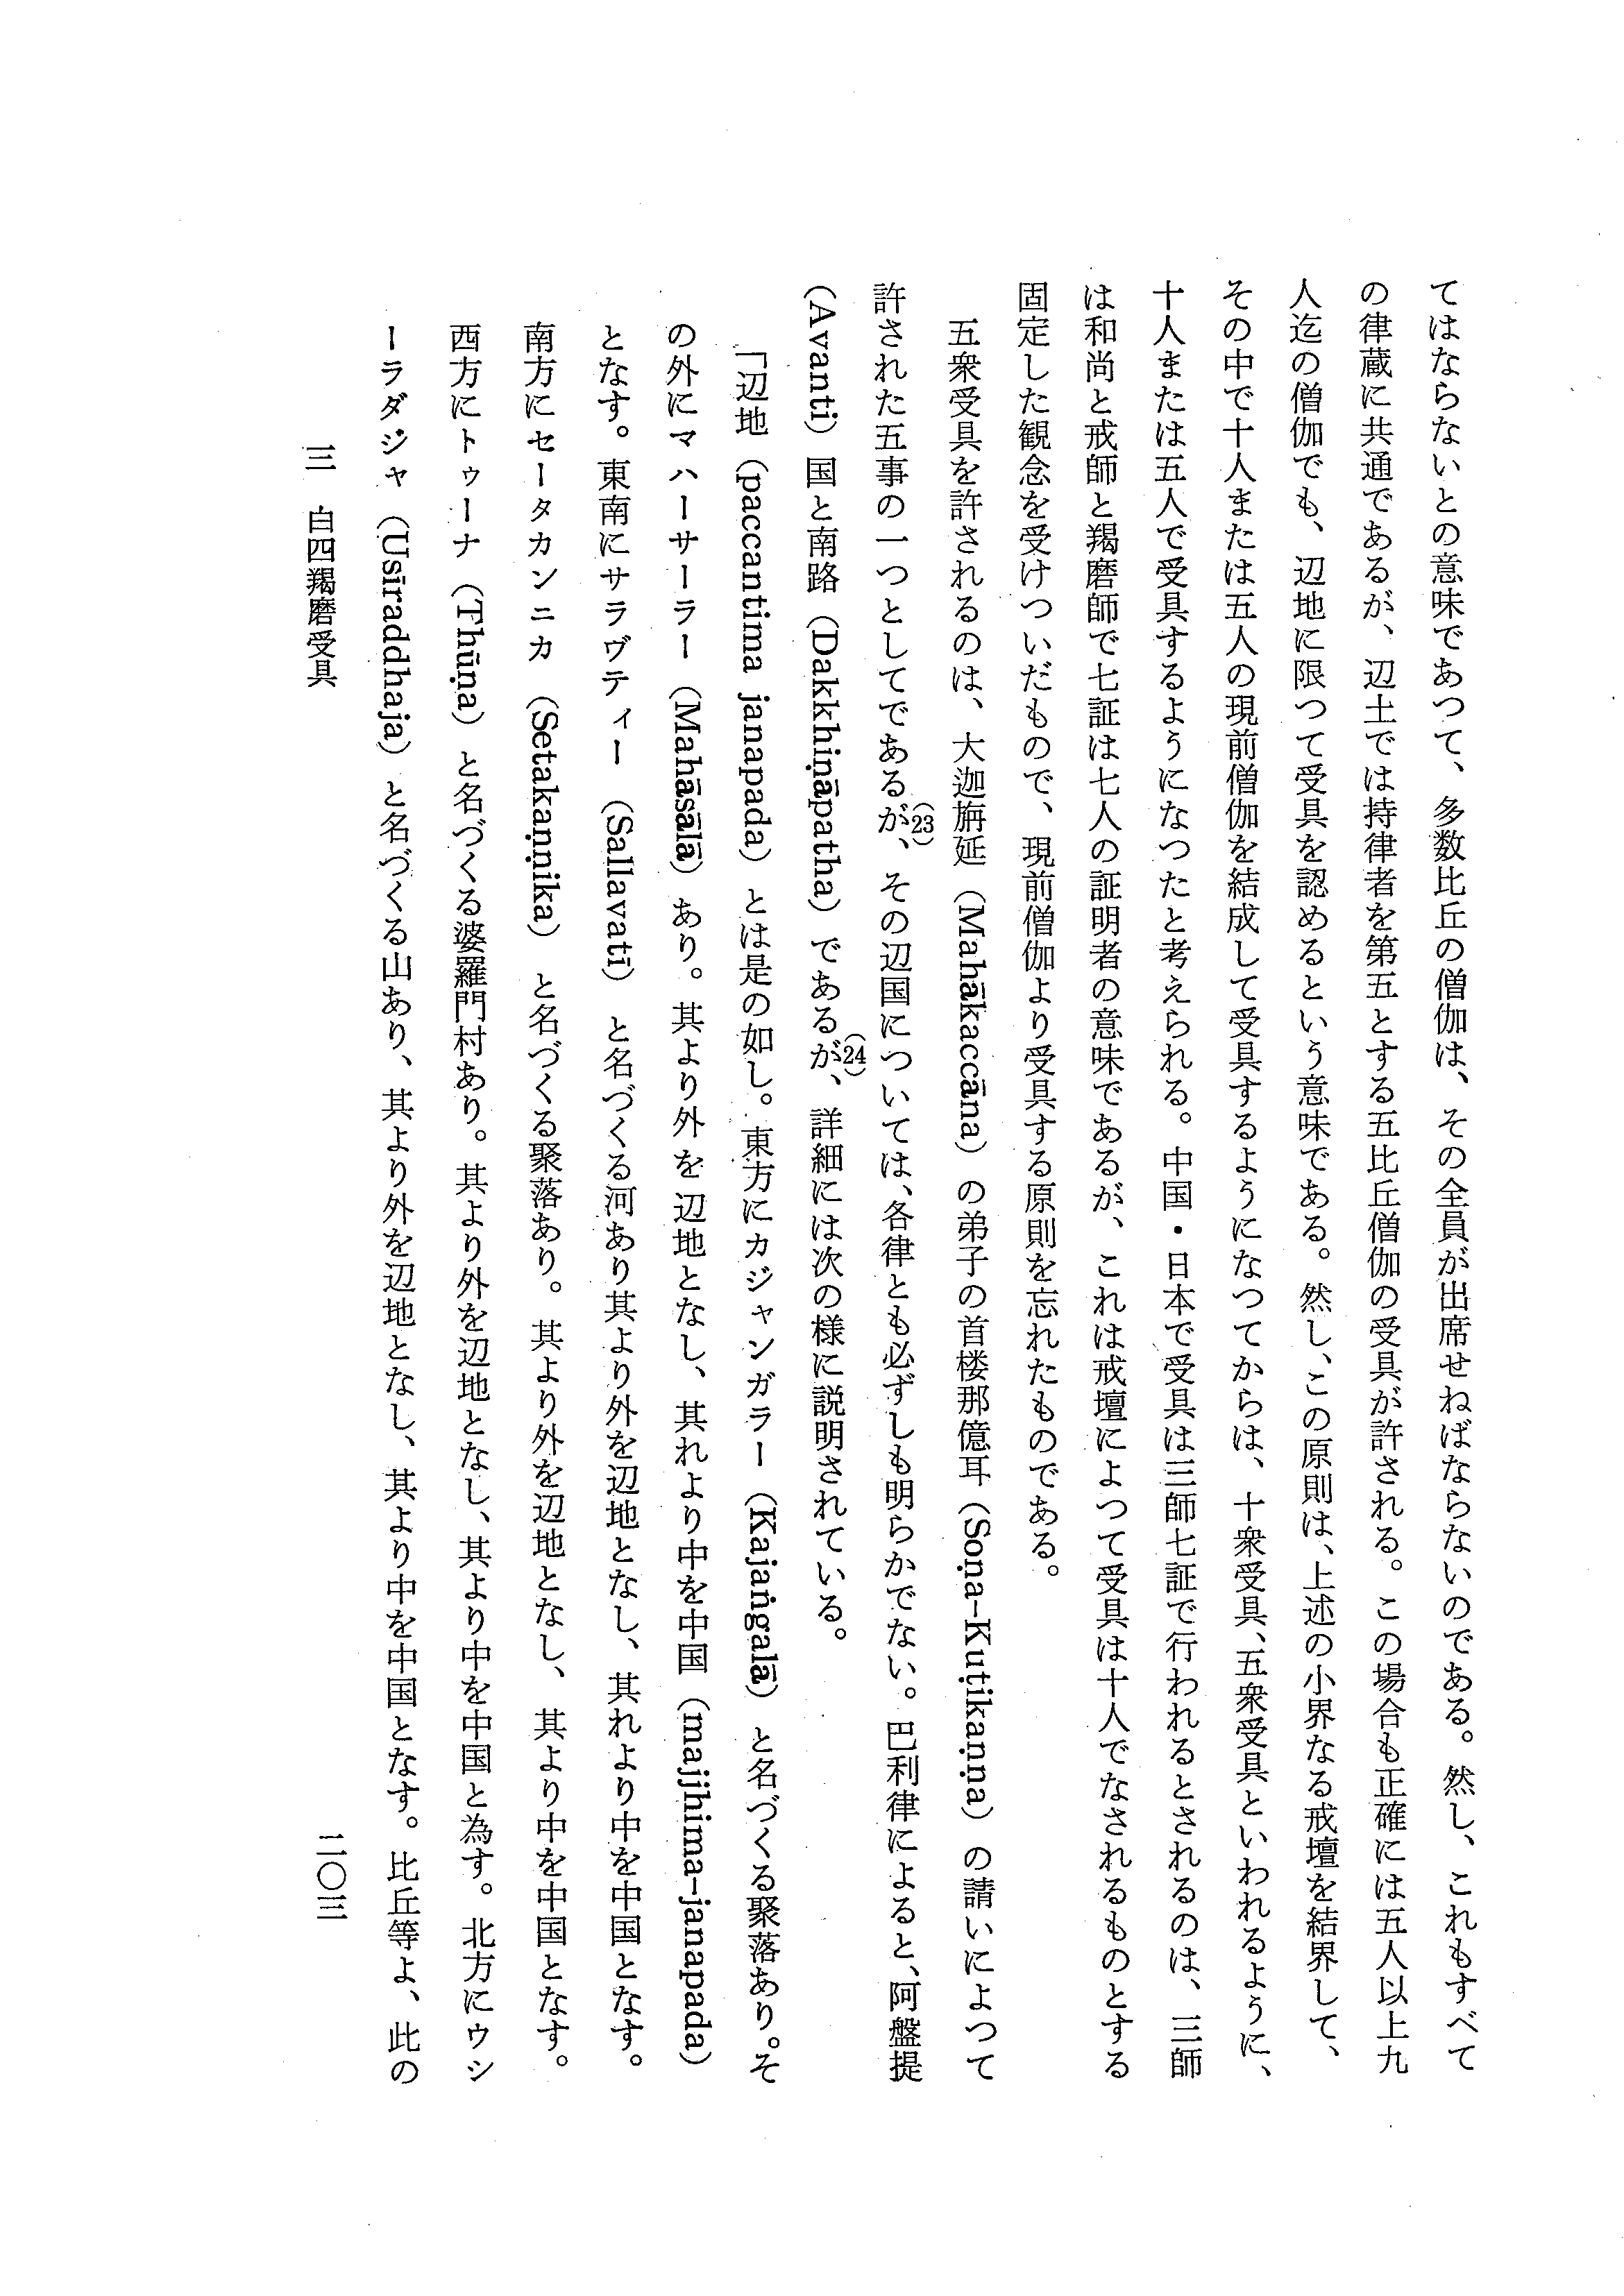 てはならないとの意味であつて、多数比丘の僧伽は、その全員が出席せねばならないのである。然し、これもすべて
の律蔵に共通であるが、辺土では持律者を第五とする五比丘僧伽の受具が許される。この場合も正確には五人以上九
人迄の僧伽でも、辺地に限つて受具を認めるという意味である。然し、この原則は、上述の小界なる戒壇を結界して、
その中で十人または五人の現前僧伽を結成して受具するようになつてからは、十衆受具、五衆受具といわれるように、
十人または五人で受具するようになつたと考えられる。中国・日本で受具は三師七証で行われるとされるのは、三師
は和尚と戒師と羯磨師で七証は七人の証明者の意味であるが、これは戒壇によつて受具は十人でなされるものとする
固定した観念を受けついだもので、現前僧伽より受具する原則を忘れたものである。
五衆受具を許されるのは、大迦旃延（Mahākaccāna）の弟子の首楼那億耳（Soṇa-Kuṭikaṇṇa）の請いによつて
許された五事の一つとしてであるが(23)、その辺国については、各律とも必ずしも明らかでない。巴利律によると、阿盤提
（Avanti）国と南路（Dakkhiṇāpatha）であるが(24)、詳細には次の様に説明されている。
「辺地（paccantima janapada）とは是の如し。東方にカジャンガラー（Kajaṅgalā）と名づくる聚落あり。そ
の外にマハーサーラー（Mahāsālā）あり。其より外を辺地となし、其れより中を中国（majjhima-janapada）
となす。東南にサラヴティー（Sallavatī）と名づくる河あり其より外を辺地となし、其れより中を中国となす。
南方にセータカンニカ（Setakaṇṇika）と名づくる聚落あり。其より外を辺地となし、其より中を中国となす。
西方にトゥーナ（Thūṇa）と名づくる婆羅門村あり。其より外を辺地となし、其より中を中国と為す。北方にウシ
ーラダジャ（Usīraddhaja）と名づくる山あり、其より外を辺地となし、其より中を中国となす。比丘等よ、此の
三　白四羯磨受具
二〇三